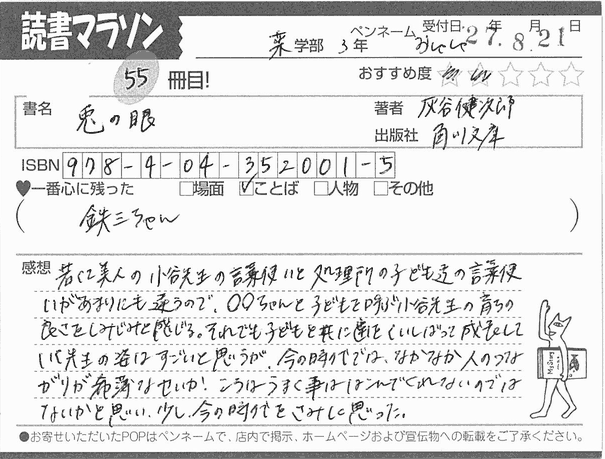 読書マラソン
薬学部 3年 ペンネーム おしし 受付日 27年8月21日
55冊目!
おすすめ度 ☆☆☆☆☆
書名 兎の眼
著者 灰谷健次郎
出版社 角川文庫
ISBN 978-4-04-352001-5
♥一番心に残った □場面 ☑ことば □人物 □その他
( 鉄三ちゃん )
感想 若く美人の小谷先生の言葉使いと処理所の子ども達の言葉使
いがあまりにも違うので、〇〇ちゃんと子どもを呼ぶ小谷先生の育ちの
良さをしみじみと感じる。それでも子どもと共に歯をくいしばって成長して
いく先生の姿はすごいと思うが、今の時代では、なかなか人のつな
がりが希薄なせいか!こうはうまく事ははこんでくれないのでは
ないかと思い、少し、今の時代をさみしく思った。
●お寄せいただいたPOPはペンネームで、店内で掲示、ホームページおよび宣伝物への転載をご了承ください。